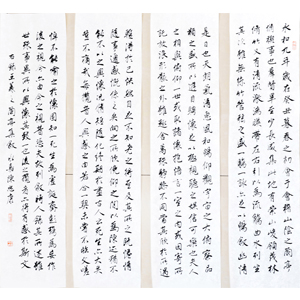 永和九年歲在癸丑暮春之初會于會稽山陰之蘭亭
脩禊事也群賢畢至少長咸集此地有崇山峻領茂林
脩竹又有清流激湍映帶左右引以為流觴曲水列坐
其次雖無絲竹管弦之盛一觴一詠亦足以暢敘幽情
是日也天朗氣清惠風和暢仰觀宇宙之大俯察品
類之盛所以遊目騁懷足以極視聽之娛信可樂也夫人
之相與俯仰一世或取諸懷抱悟言一室之內或因寄所
託放浪形骸之外雖趣舍萬殊靜躁不同當其欣於所遇
暫得於己快然自足不知老之將至及其所之既倦情
隨事遷感慨係之矣向之所欣俛仰之間以為陳迹猶不
能不以之興懷況脩短隨化終期於盡古人云死生亦大矣
豈不痛哉每攬昔人興感之由若合一契未嘗不臨文嗟
悼不能喻之於懷固知一死生為虛誕齊彭殤為妄作
後之視今亦由今之視昔悲夫故列敘時人錄其所述雖
世殊事異所以興懷其致一也後之攬者亦將有感於斯文
王羲之蘭亭集敘